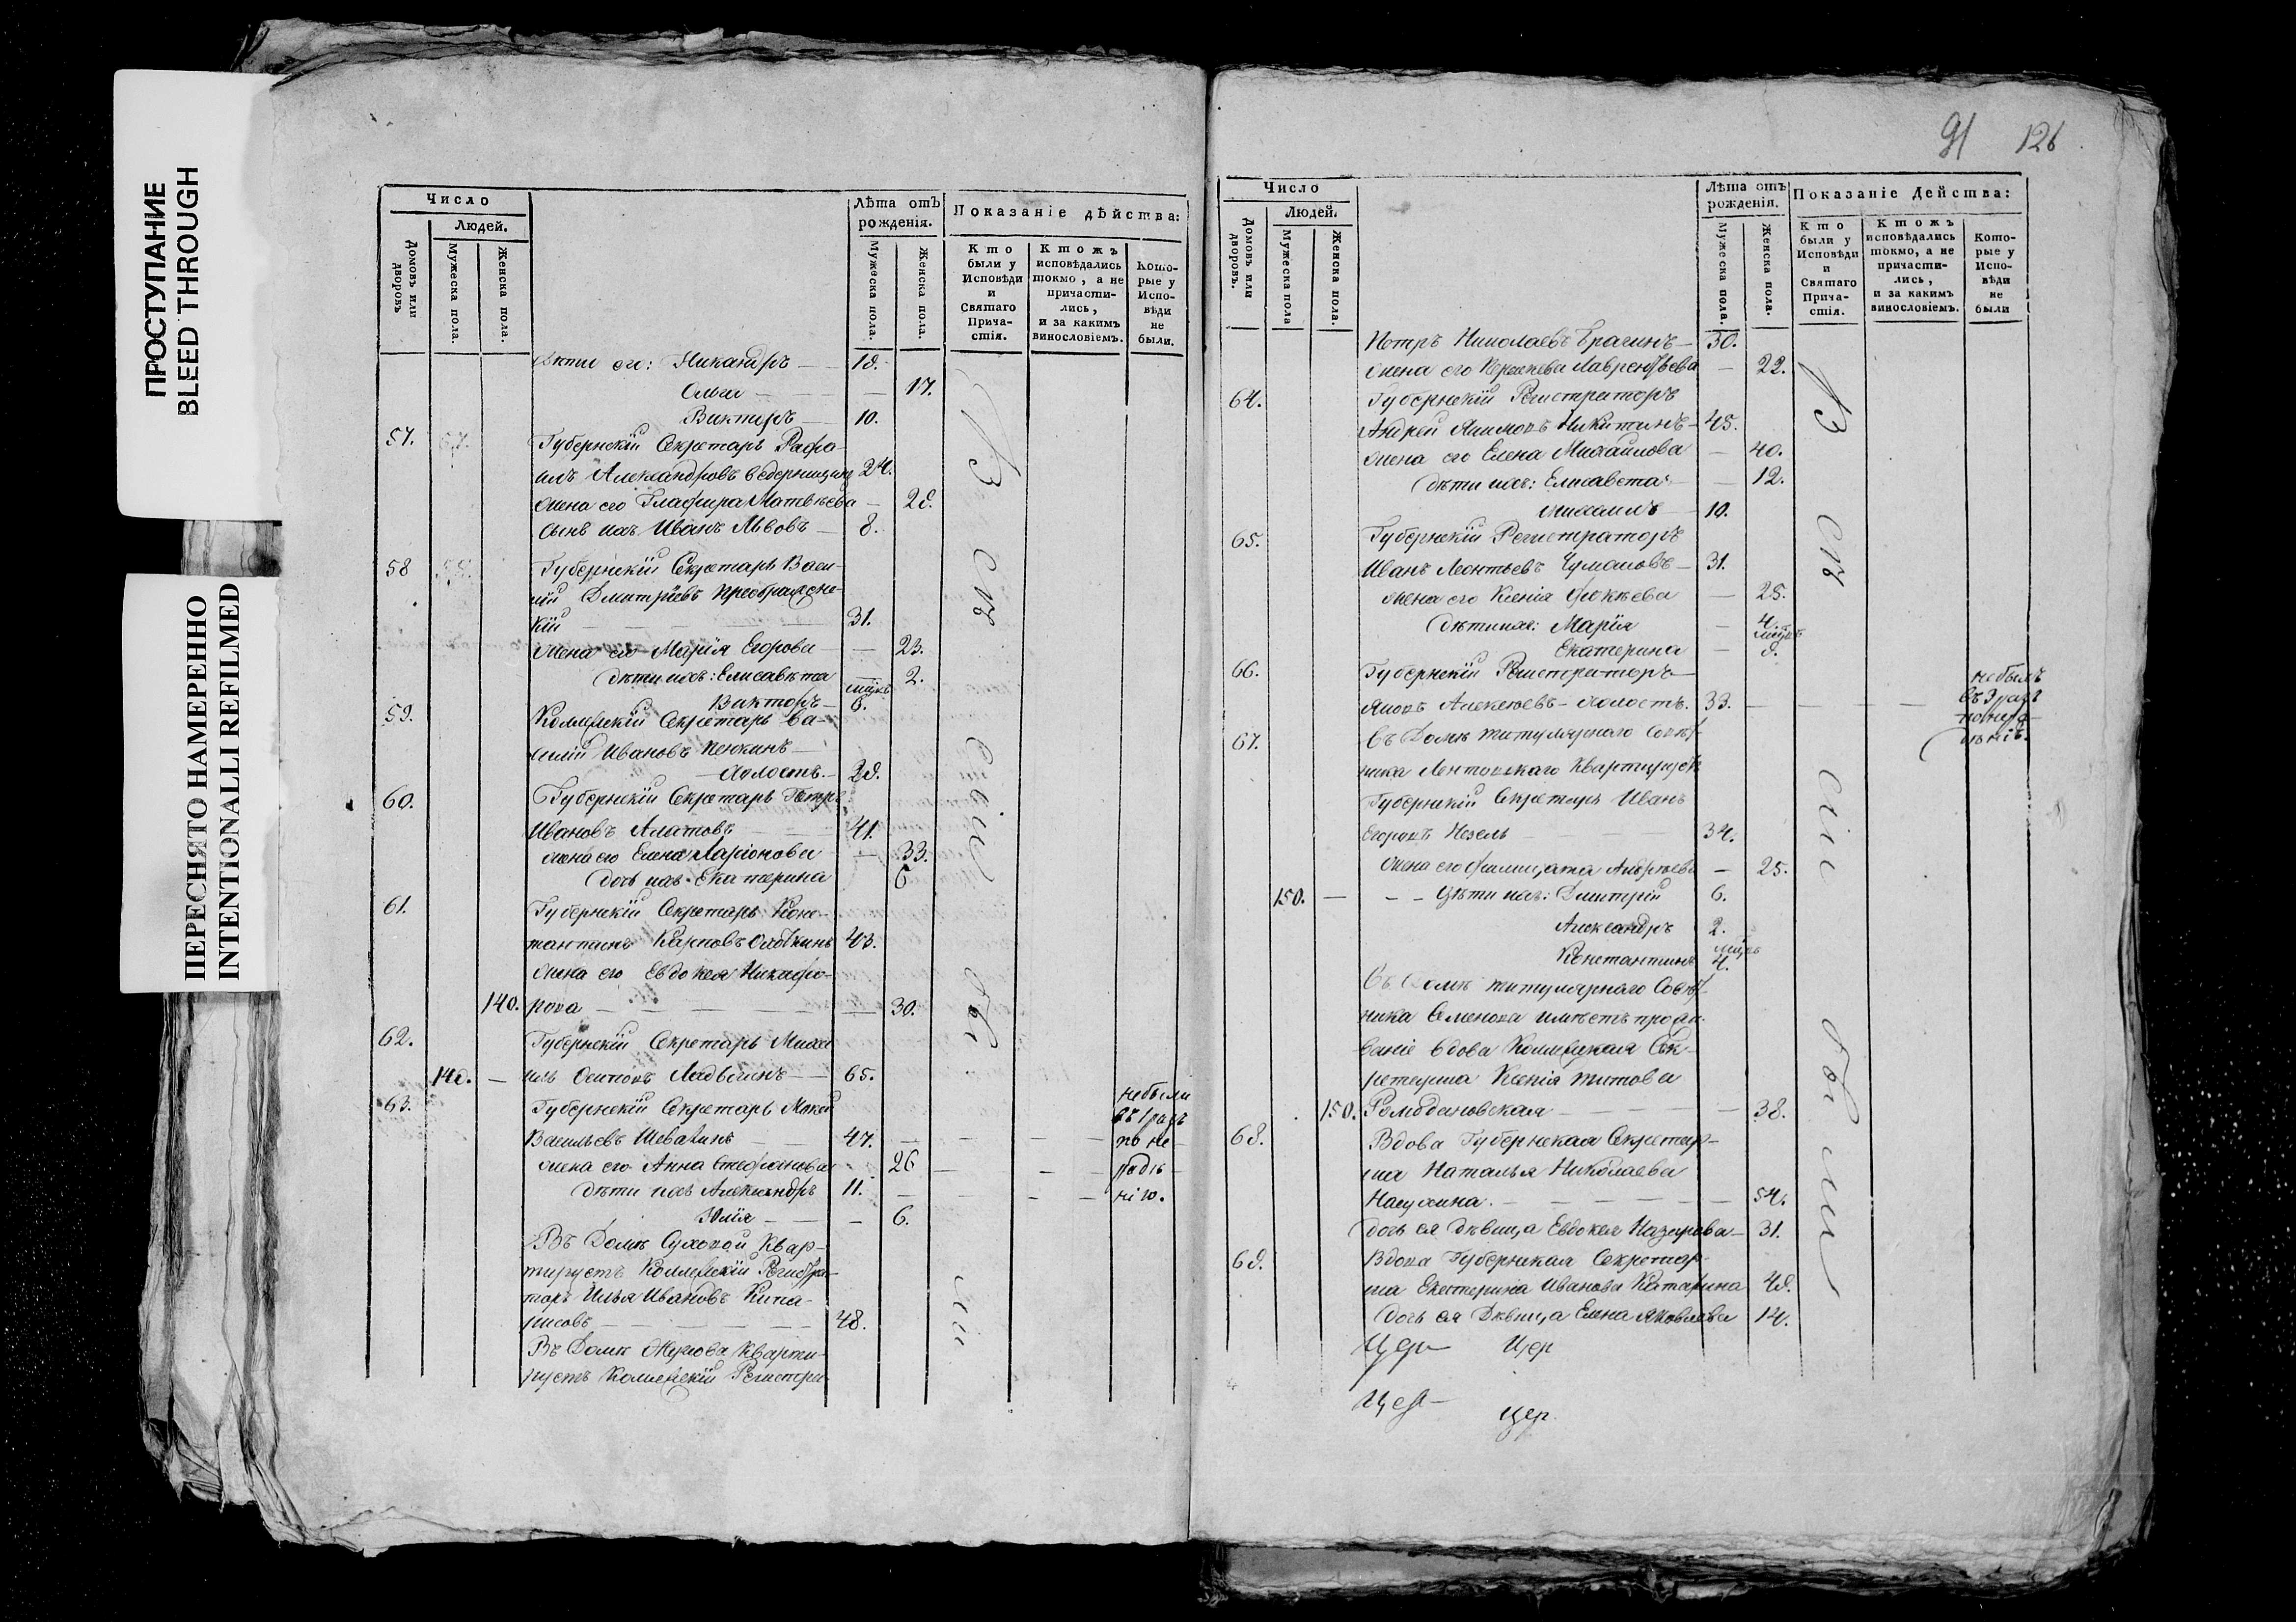 ПРОСТУПАНИЕ
BLEED THROUGH
ПЕРЕСНЯТО НАМЕРЕННО
INTENTIONALLI REFILMED
Число
Людей.
Домовъ или дворовъ
Мужеска пола.
Женска пола.
Лѣта отъ рожденія.
Мужеска пола.
Женска пола.
Показаніе дѣйства:
Кто были у Исповѣди и Святаго Прича-стія.
Ктожъ исповѣдались токмо, а не причасти-лись, и за какимъ винословіемъ.
Кото-рые у Испо-вѣди не были.
дѣти его: Никандръ — 18.
Ольга — 17.
Викторъ — 10.
57. Губернскій Секретарь Рафа-
илъ Александровъ 24.
жена его Глафира Матвѣева — 28.
сынъ ихъ Иванъ Львовъ — 8.
58 Губернскій Секретарь Васи-
лій Дмитріевъ Преображенс-
кій — 31.
жена его Марія Егорова — 23.
дѣти ихъ: Елисавѣта 2.
Викторъ — 6.
59. Коллежскій Секретарь Ва-
силій Ивановъ Пенкинъ —
— холостъ. — 28.
60. Губернскій Секретарь Петръ
Ивановъ Алатовъ 41.
жена его Елена Ларіонова — 33.
дочь ихъ Екатерина 6
61. Губернскій Секретарь Конс-
тантинъ Карповъ 43.
жена его Евдокея Никифо-
140. рова — 30.
62. Губернскій Секретарь Миха
148. — илъ Осиповъ — 65.
63. Губернскій Секретарь Мокей
Васильевъ 47. —
жена его Анна Стефанова 26 —
дѣти ихъ Александръ 11. —
Юлія — 6.
небыли
въ 1 разъ
по не-
радѣ-
нію.
Въ Домѣ Суховой Квар-
тируетъ Коллежскій Регистра-
торъ Илья Ивановъ Кипа-
рисовъ — 48.
Въ Домѣ Жукова Кварти-
руетъ Коллежскій Регистра-
91 126
Число
Людей.
Домовъ или дворовъ.
Мужеска пола
Женска пола.
Лѣта отъ рожденія.
Мужеска пола.
Женска пола.
Показаніе Действа:
Кто были у Исповѣди и Святаго Прича-стія.
Ктожъ исповѣдались токмо, а не причасти-лись, и за какимъ винословіемъ.
Кото-рые у Испо-вѣди не были
Петръ Николаевъ Брагинъ — 30.
жена его Лаврентьева — 22.
64. Губернскій Регистраторъ
Андрей Акимовъ Никитинъ — 45.
жена его Елена Михайлова — 40.
дѣти ихъ: Елисавета — 12.
Михаилъ — 10.
65. Губернскій Регистраторъ
Иванъ Леонтьевъ — 31.
жена его Ксенія Фокѣева — 25.
дѣти ихъ: Марія — 4.
Екатерина — 8.
66. Губернскій Регистраторъ —
Яковъ Алексѣевъ — холостъ. 33. —
небылъ
въ 3 разъ
понера-
дѣнію.
67. Въ Домѣ титулярнаго Совѣт-
ника Лентовскаго квартируетъ
Губернскій Секретарь Иванъ
Егоровъ — 34.
жена его Андрѣева — 25.
150. — дѣти ихъ: Дмитрій 6.
Александръ 2.
Константинъ 4.
Въ Домѣ титулярнаго Совѣт-
ника Семенова имѣетъ прожи-
ваніе вдова Коллежская Сек-
ретарша Ксенія Титова
150. Ромодановская — 38.
68. Вдова Губернская Секретар-
ша Наталья Николаева
— 54.
дочь ея дѣвица Евдокея Назарова — 31.
69. Вдова Губернская Секретар-
ша Екатерина Иванова 48.
дочь ея Дѣвица Елена Яковлева 14.